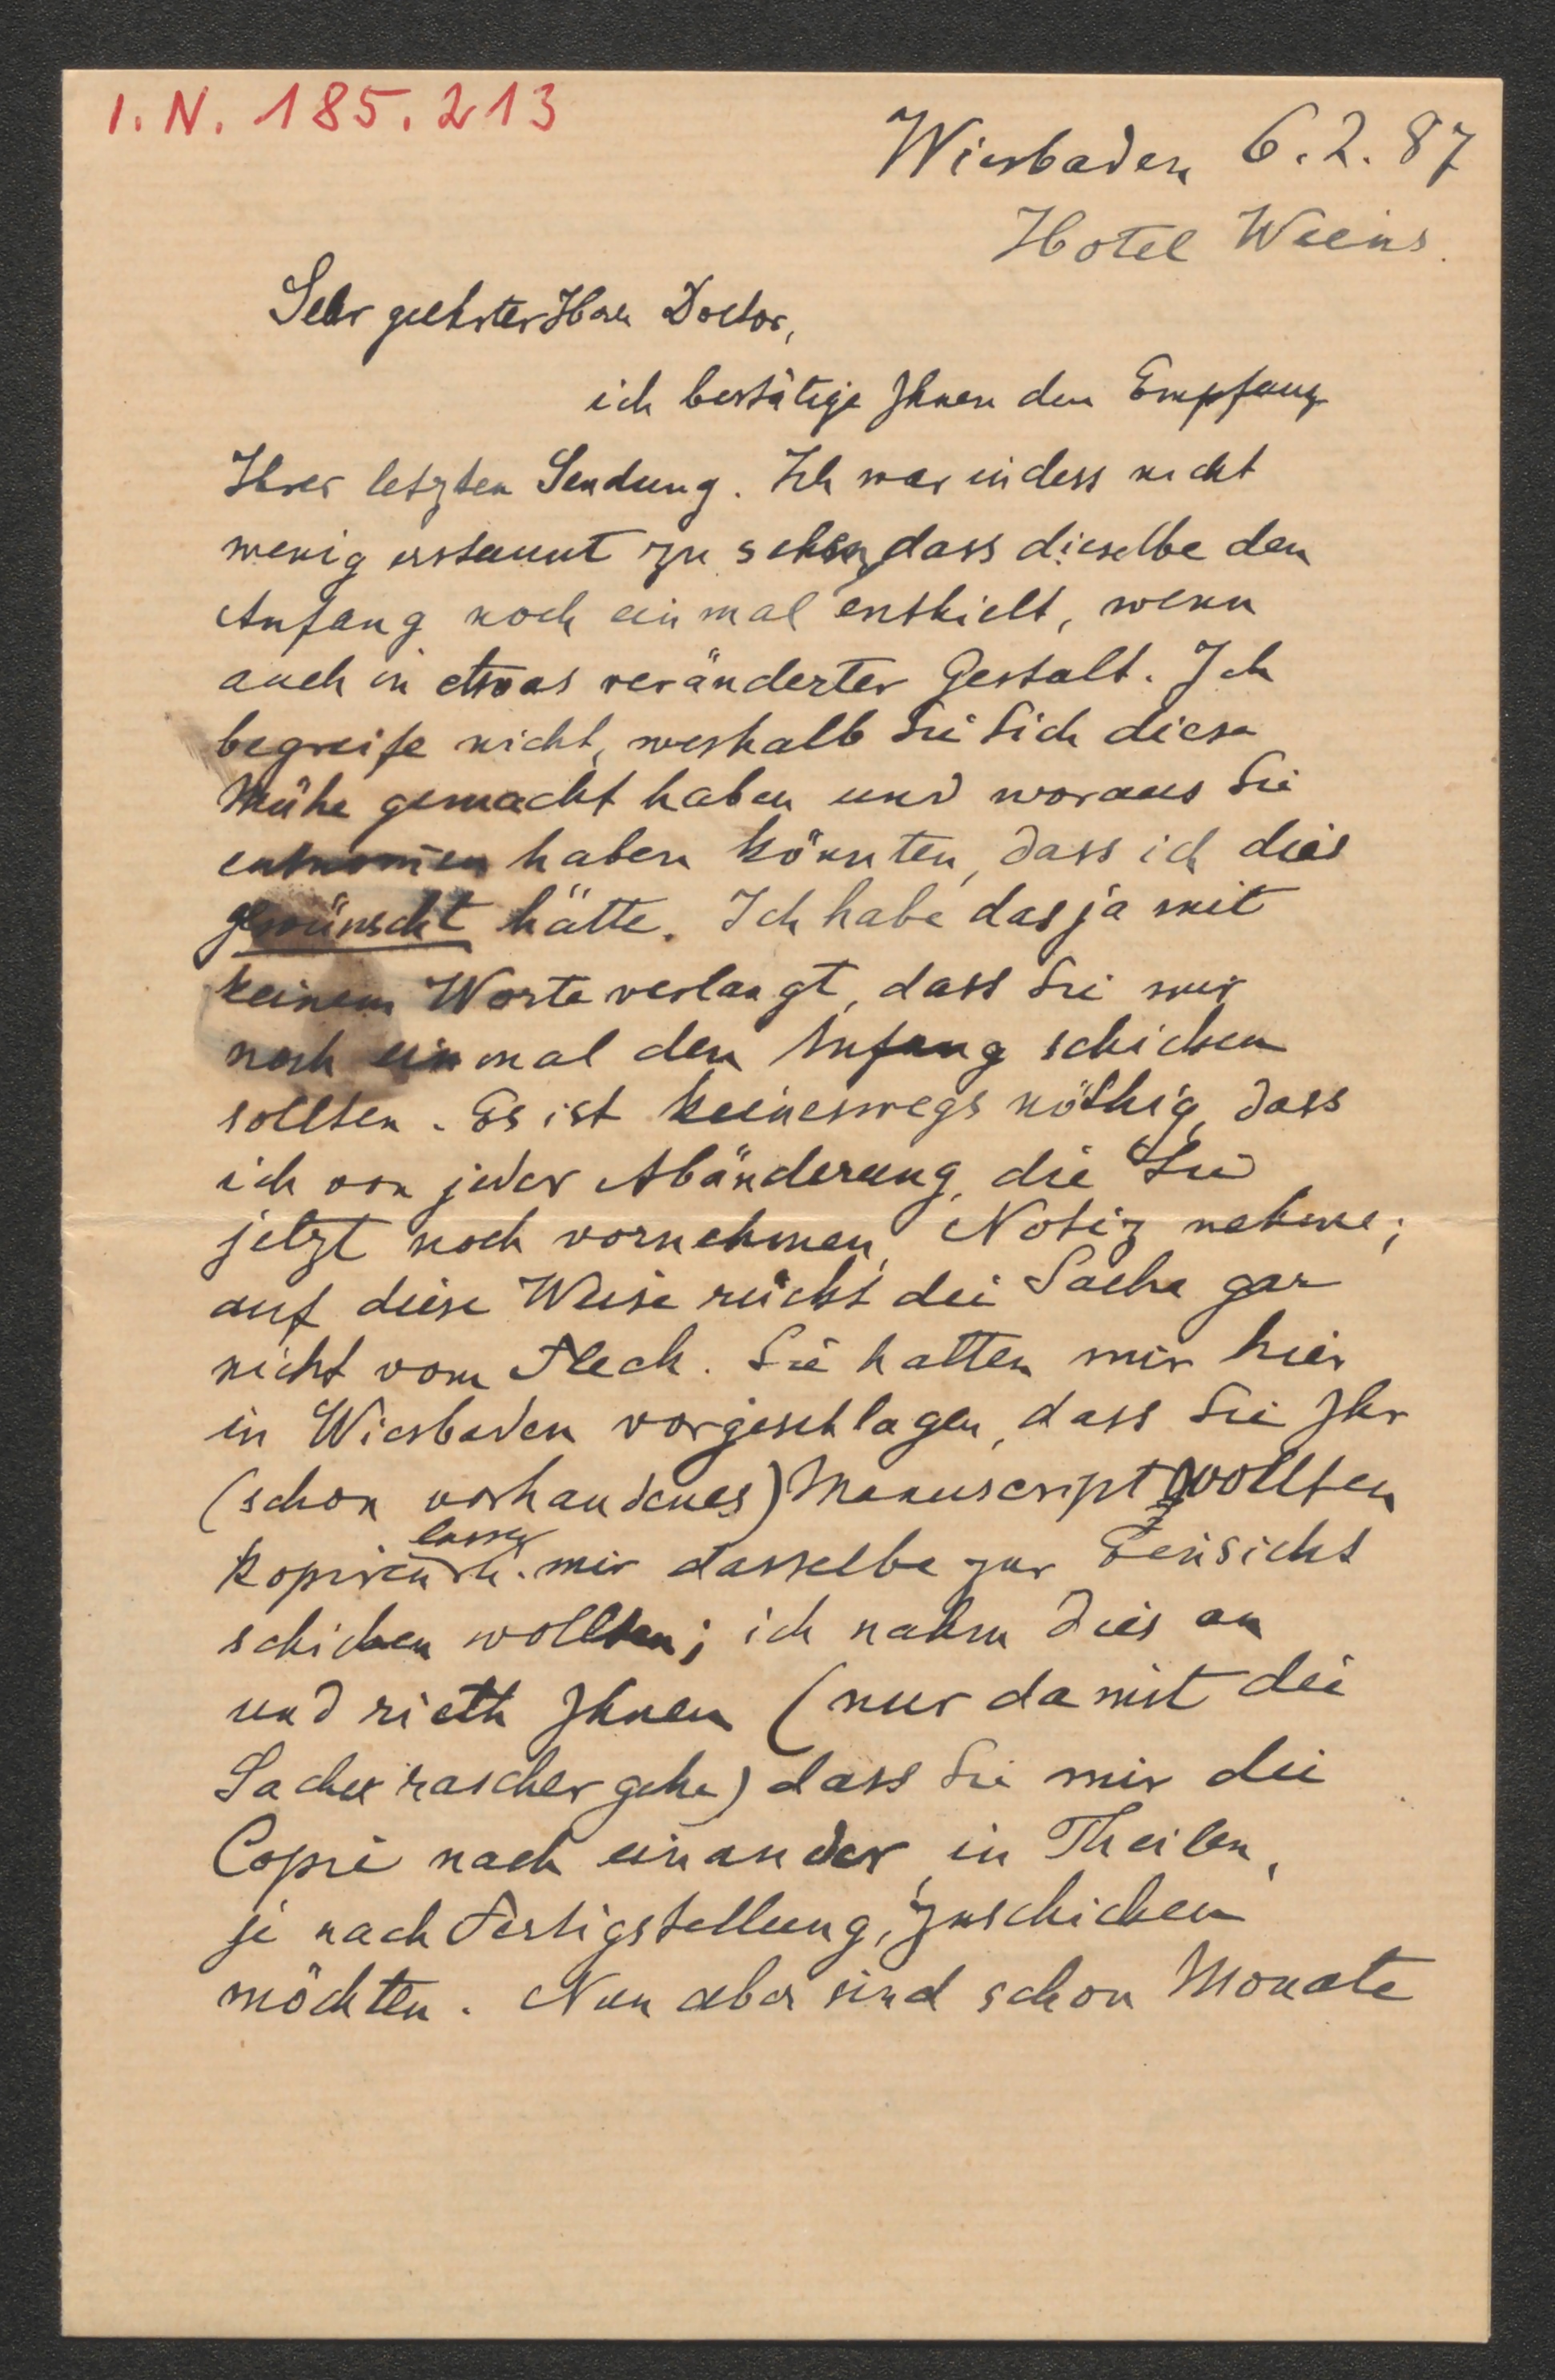 I. N. 185.213
Wiesbaden 6.2.87
Hotel Weins.
Sehr geehrter Herr Doctor,
ich bestätige Ihnen den Empfang
Ihrer letzten Sendung. Ich war indess nicht
wenig erstaunt zu sehen, dass dieselbe den
Anfang noch einmal enthielt, wenn
auch in etwas veränderter Gestalt. Ich
begreife nicht, weshalb Sie Sich diese
Mühe gemacht haben und woraus Sie
entnom̄en haben könnten, dass ich dies
gewünscht hätte. Ich habe das ja mit
keinem Worte verlangt, dass Sie mir
noch einmal den Anfang schicken
sollten. Es ist keineswegs nöthig, dass
ich von jeder Abänderung, die Sie
jetzt noch vornehmen, Notiz nehme;
auf diese Weise rückt die Sache gar
nicht vom Fleck. Sie hatten mir hier
in Wiesbaden vorgeschlagen, dass Sie Ihr
(schon vorhandenes) Manuscript wollten
kopiren lassen u. mir dasselbe zur Einsicht
schicken wollten; ich nahm dies an
und rieth Ihnen (nur damit die
Sache rascher gehe) dass Sie mir die
Copie nach einander, in Theilen,
je nach Fertigstellung, zuschicken
möchten. Nun aber sind schon Monate